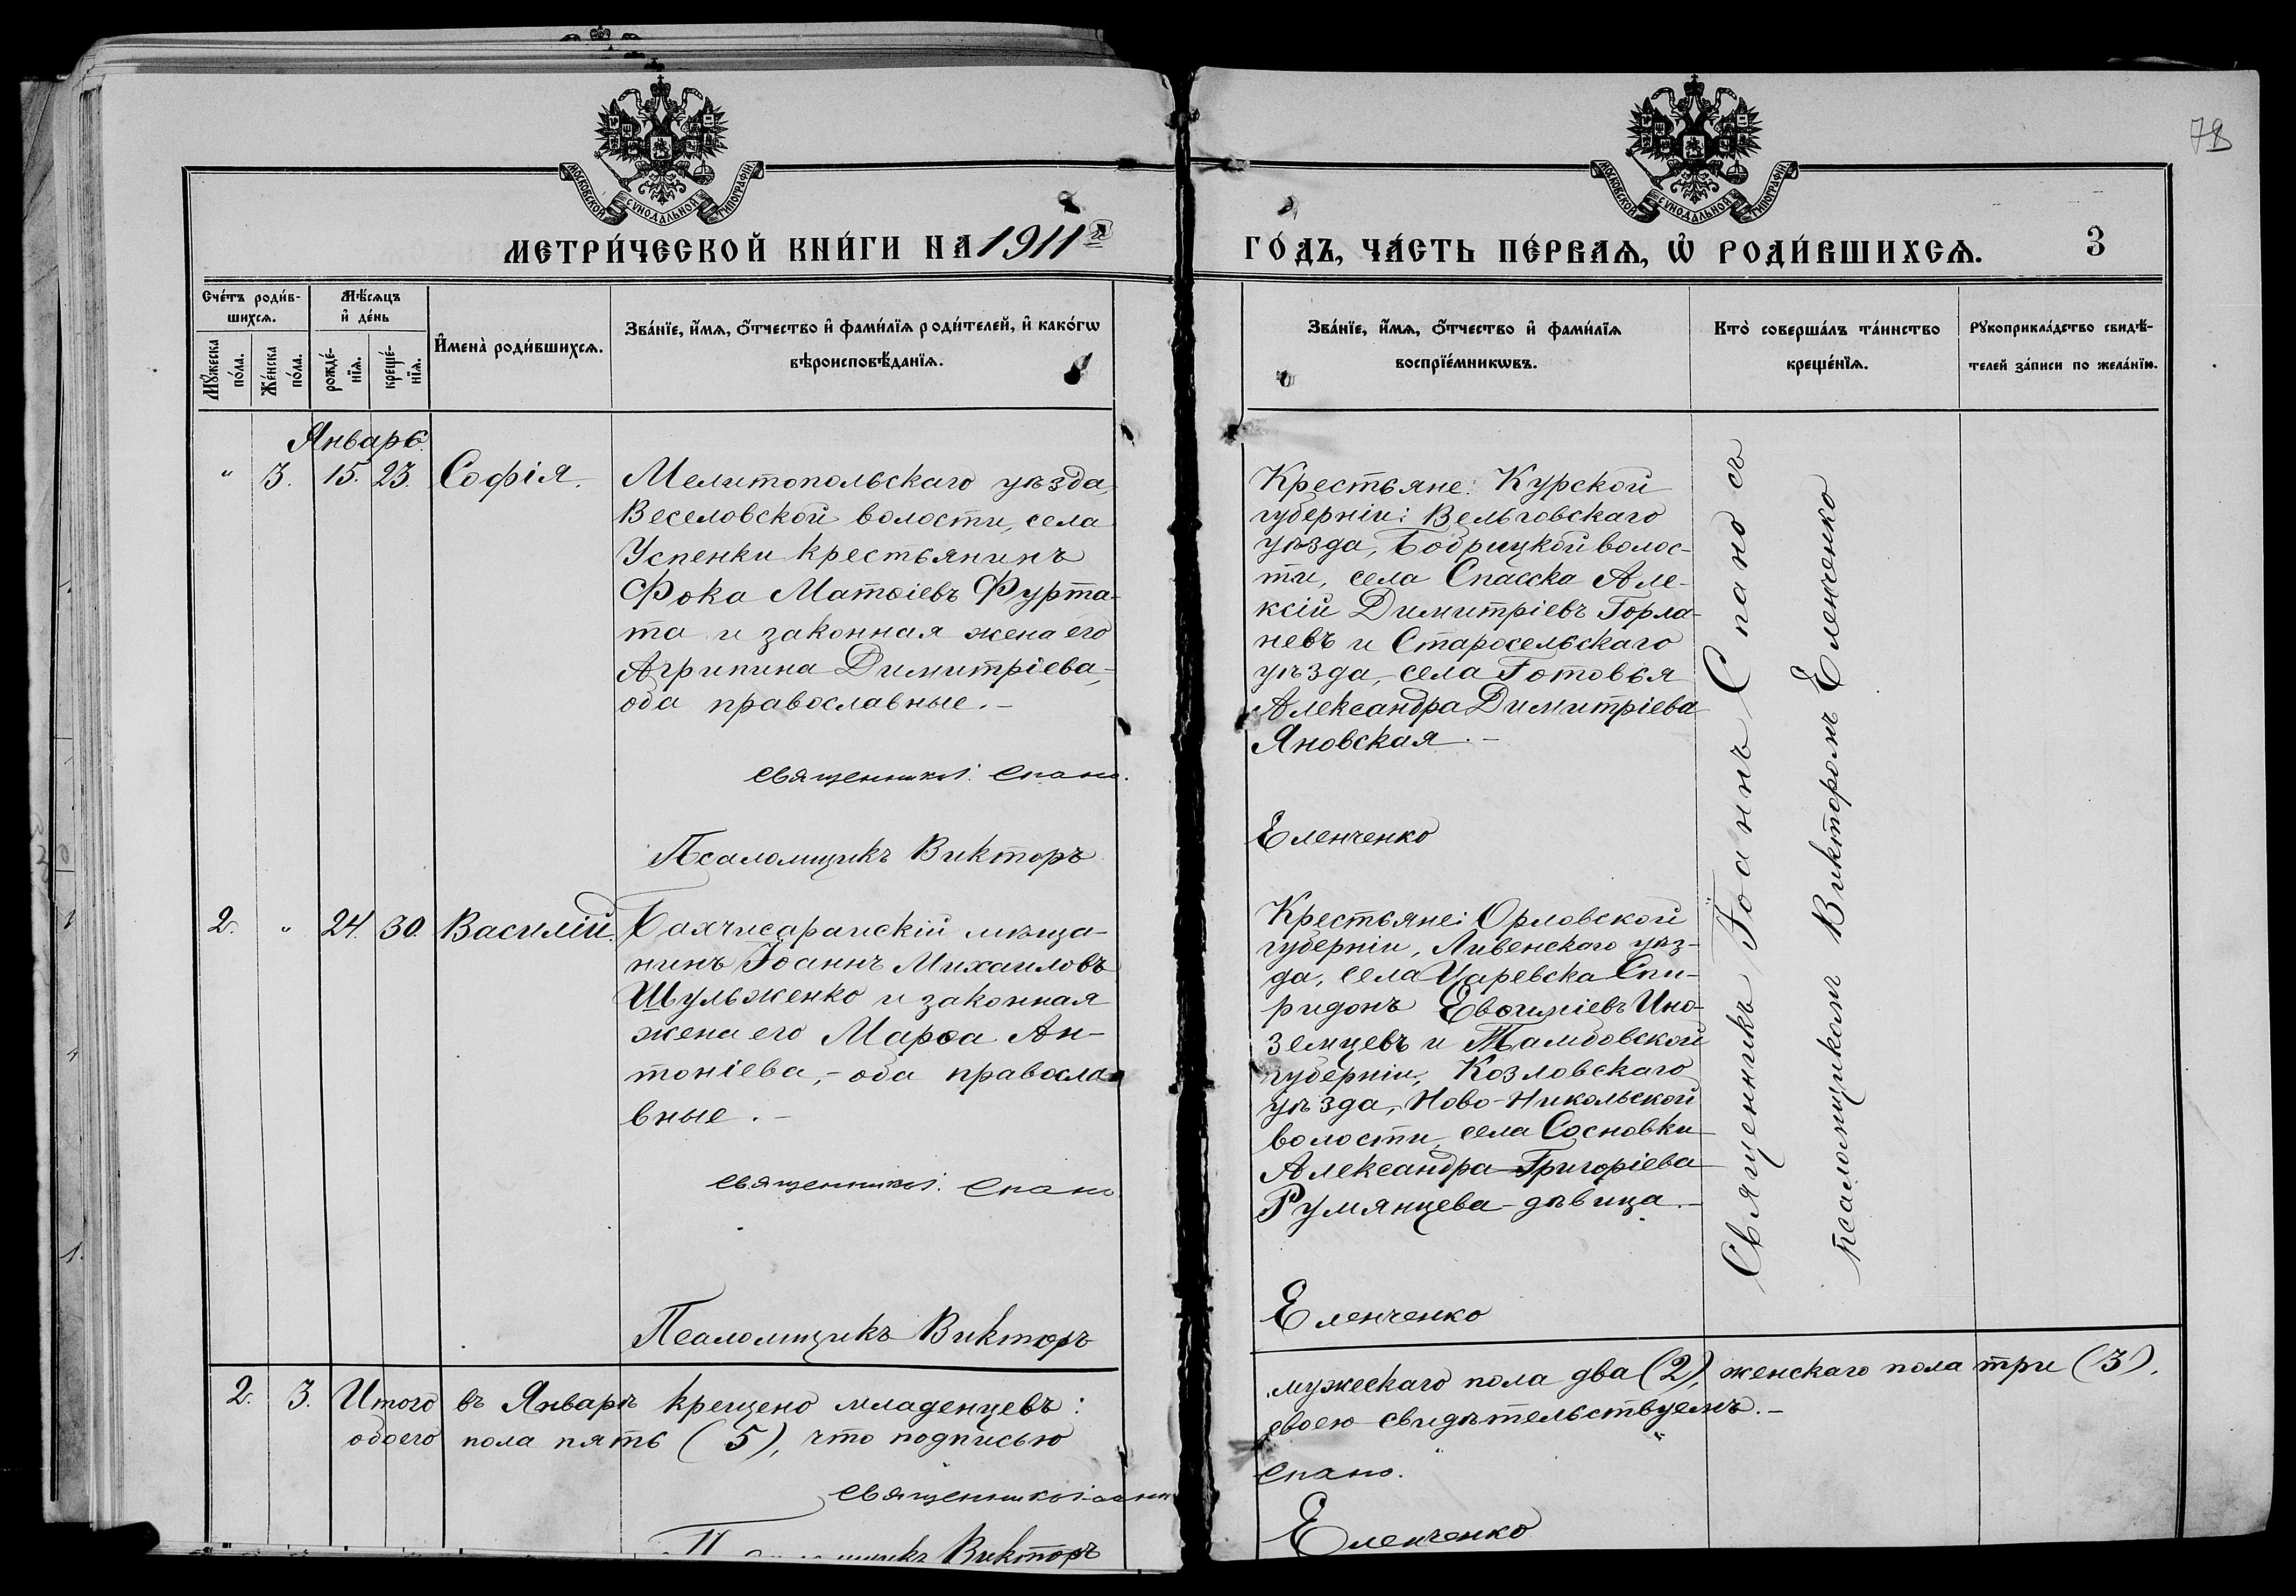 78
МОСКОВСКОЙ СѴНОДАЛЬНОЙ ТИПОГРАФІИ
МОСКОВСКОЙ СѴНОДАЛЬНОЙ ТИПОГРАФІИ
МЕТРИ́ЧЕСКОЙ КНИ́ГИ НА 1911й
ГО́ДЪ, ЧА́СТЬ ПЕ́РВАѦ, Ѡ РОДИ́ВШИХСѦ.
3
Сче́тъ роди́в-
шихсѧ.
Мꙋ́жеска
по́ла.
Же́нска
по́ла.
Мѣ́сѧцъ
и҆ де́нь
рожде́-
нїѧ.
креще́-
нїѧ.
И҆мена̀ роди́вшихсѧ.
Зва́нїе, и҆́мѧ, ѻ҆́тчество и҆ фами́лїѧ роди́телей, и҆ како́гѡ
вѣроисповѣ́данїѧ.
Зва́нїе, и҆́мѧ, ѻ҆́тчество и҆ фами́лїѧ
воспрїе́мникѡвъ.
Кто̀ соверша́лъ та́инство
креще́нїѧ.
Рꙋкоприкла́дство свидѣ́-
телей за́писи по жела́нїю.
Январь.
" 3. 15. 23. Софія.
Мелитопольскаго уѣзда,
Веселовской волости, села
Успенки крестьянинъ
Фока Матѳіевъ Фурта-
та и законная жена его
Агрипина Димитріева,
оба православные.-
Священникъ І. Спано.
Псаломщикъ Викторъ
Крестьяне: Курской
губерніи: Вельговскаго
уѣзда, Бобрицкой волос-
ти, села Спасска Але-
ксій Димитріевъ Горла-
невъ и Старосельскаго
уѣзда, села Готовья
Александра Димитріева
Яновская.-
Еленченко
Священникъ Іоаннъ Спано съ
псаломщикомъ Викторомъ Еленченко
2. " 24. 30. Василій.
Бахчисарайскій мѣща-
нинъ Іоаннъ Михаиловъ
Шульженко и законная
жена его Марѳа Ан-
тоніева,- оба правосла-
вные.-
Священникъ І. Спано
Псаломщикъ Викторъ
Крестьяне: Орловской
губерніи, Ливенскаго уѣз-
да, села Царевска Спи-
ридонъ Евѳиміевъ Ино-
земцевъ и Тамбовской
губерніи, Козловскаго
уѣзда, Ново-Никольской
волости, села Сосновки
Александра Григоріева
Румянцева-дѣвица.-
Еленченко
2. 3. Итого въ Январѣ крещено младенцевъ:
мужескаго пола два (2), женскаго пола три (3),
обоего пола пять (5), что подписью
своею свидѣтельствуемъ.-
Священникъ Іоаннъ
Спано.
Псаломщикъ Викторъ
Еленченко